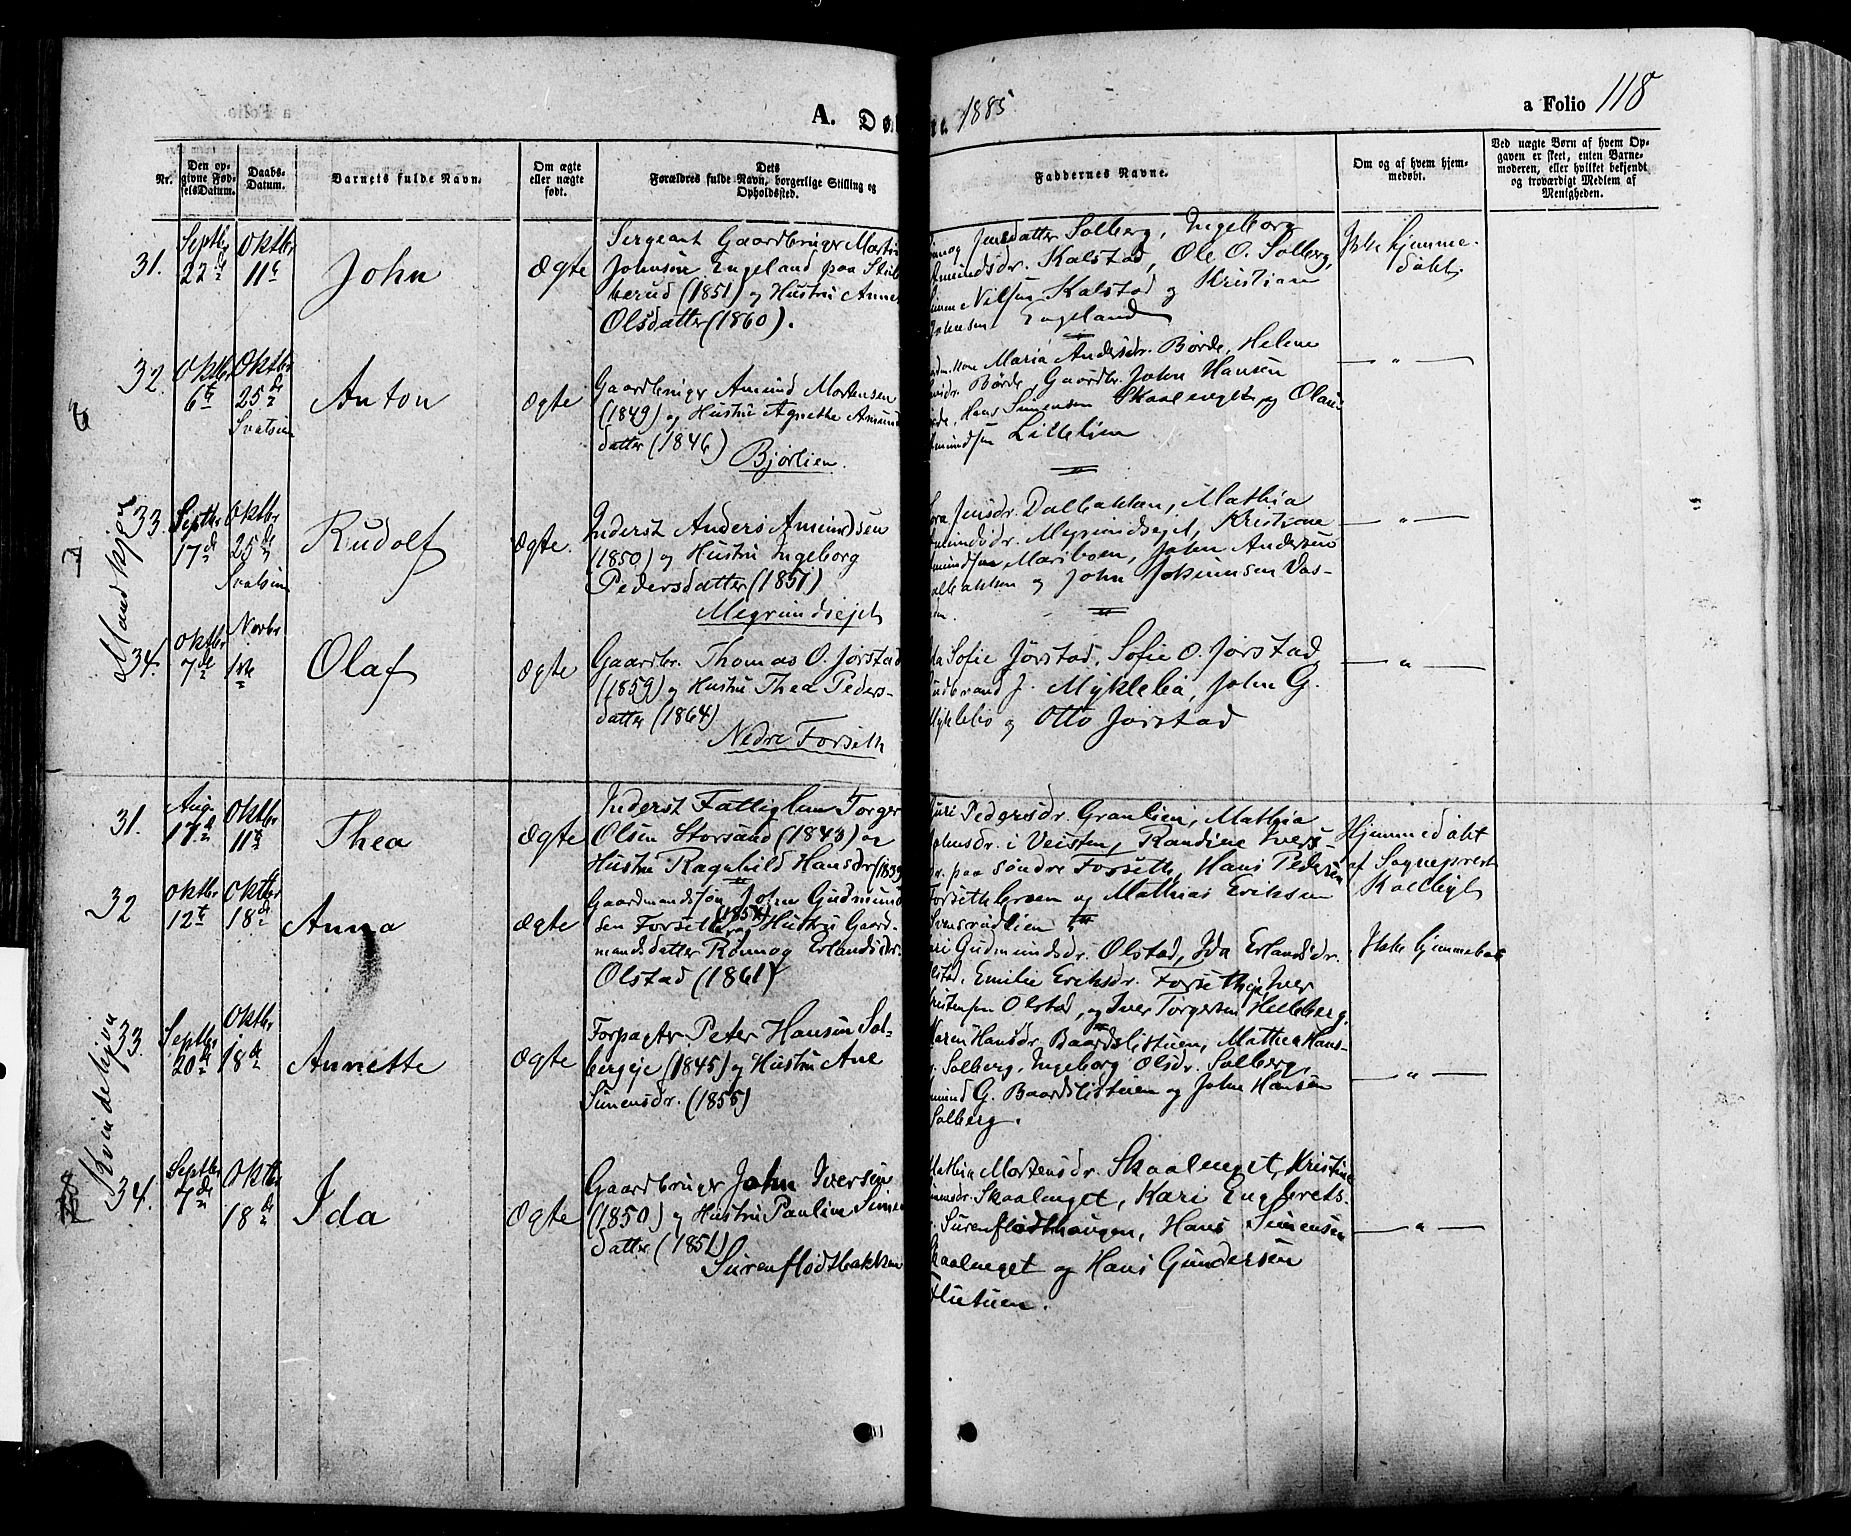 A. Dø
Nr.
Den op-
givne Fød-
selsDatum.
Daabs-
Datum.
Barnets fulde Navn.
Om ægte
eller uægte
født.
Dets
Forældres fulde Navn, borgerlige Stilling og
Opholdssted.
31.
Septbr
22d
Oktbr
11te
John
Ægte
Sergeant Gaardbruger
Johnsen Engeland paa
berud (1851) og Hustru Anne
Olsdatter (1860).
32.
Oktbr
6te
Oktbr
25de
Svatsum
Anton
Ægte
Gaardbruger Amund Mortensen
(1849) og Hustru Agnethe Amunds
datter (1846)
Bjørlien.
Mandkjøn
33.
Septbr
17de
Oktbr
25de
Svatsum
Rudolf
Ægte.
Inderst Anders Amundsen
(1850) og Hustru Ingeborg
Pedersdatter (1851)
Megrundsejet
34.
Oktbr
7de
Novbr
1ste
Olaf
Ægte
Gaardbr. Thomas O. Jørstad
(1859) og Hustru Thea Peders-
datter (1864)
Nedre Forseth
31.
Aug.
17de
Oktbr
11te
Thea
Ægte
Inderst Fattiglem Torger
Olsen Storsand (1843) og
Hustru Ragnhild Hansdr (1839
32
Oktbr
12te
Oktbr
18de
Anna
Ægte
Gaardmandssøn John Gudmund
sen Forseth og Hustru Gaard-
mandsdatter Rønnog Erlandsdr.
Olstad (1861)
Kvindekjøn
33.
Septbr
20de
Oktbr
18de
Annette
Ægte
Forpagter Peter Hansen Sol-
bergeje (1845) og Hustru Ane
Simensdr. (1855)
34.
Septbr
7de
Oktbr
18de
Ida
Ægte
Gaardbruger John Iversen
(1850) og Hustru Pauline Simens
datter (1851)
Surenflodtbakken
1885
a Folio 118
Faddernes Navne.
Om og af hvem hjem-
medøbt.
Ved uægte Børn af hvem Op-
gaven er skeet, enten Barne-
moderen, eller hvilket bekjendt
og troværdigt Medlem af
Menigheden.
Jensdatter Solberg, Ingeborg
Amundsdr. Kalstad, Ole O. Solberg,
Nilsen Kalstad og Kristian
Johnsen Engeland
Ikke hjemme-
døbt.
Kone Maria Andersdr. Børde, Helene
Børde, Gaardbr. John Hansen
Hans Simensen Skaalenget, og Olaus
Amundsen Lillelien
— " —
Jensdr. Dalbakken, Mathia
Amundsdr. Megrundsejet, Kristiane
Amundsen Mariboen, John Andersen
Dalbakken og John Johannesen Vas-
— " —
Sofie Jørstad, Sofie O. Jørstad
Gudbrand J. Myklebø, John G.
Myklebø og Otto Jørstad
— " —
Guri Pedersdr. Granlien, Mathia
Johnsdr. i Veisten, Randine Ivers-
dr. paa søndre Forseth, Hans Pedersen
Forsethgroen og Mathias Eriksen
Svensrudlien
Hjemmedøbt
af Sogneprest
Kari Gudmundsdr. Olstad, Ida Erlandsdr.
Olstad, Emilie Eriksdr. Forsethgjet, Iver
Kristensen Olstad, og Iver Torgersen Helleberg.
Ikke hjemmedøbt
Karen Hansdr. Baardslistuen, Mathea Hans-
dr. Solberg, Ingeborg Olsdr. Solberg,
Amund G. Baardslistuen og John Hansen
Solberg.
— " —
Mathia Mortensdr. Skaalenget, Kristine
Simensdr. Skaalenget, Kari Engebrets-
dr. Surenflodthaugen, Hans Simensen
Skaalenget og Hans Gundersen
Flutuen.
— " —